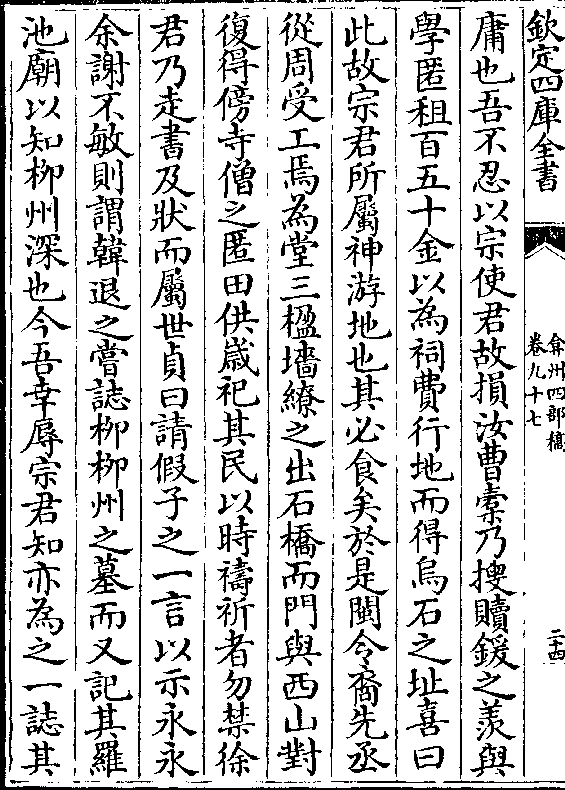 欽定四庫全書
弇州四部稿
卷九十七
二十四
庸也吾不忍以宗使君故損汝曹橐乃搜贖鍰之羨與
學匿租百五十金以為祠費行地而得烏石之址喜曰
此故宗君所屬神游地也其必食矣於是閩令裔先丞
從周受工焉為堂三楹墻繚之出石橋而門與西山對
復得傍寺僧之匿田供歲祀其民以時禱祈者勿禁徐
君乃走書及狀而屬世貞曰請假子之一言以示永永
余謝不敏則謂韓退之嘗誌柳柳州之墓而又記其羅
池廟以知柳州深也今吾幸辱宗君知亦為之一誌其